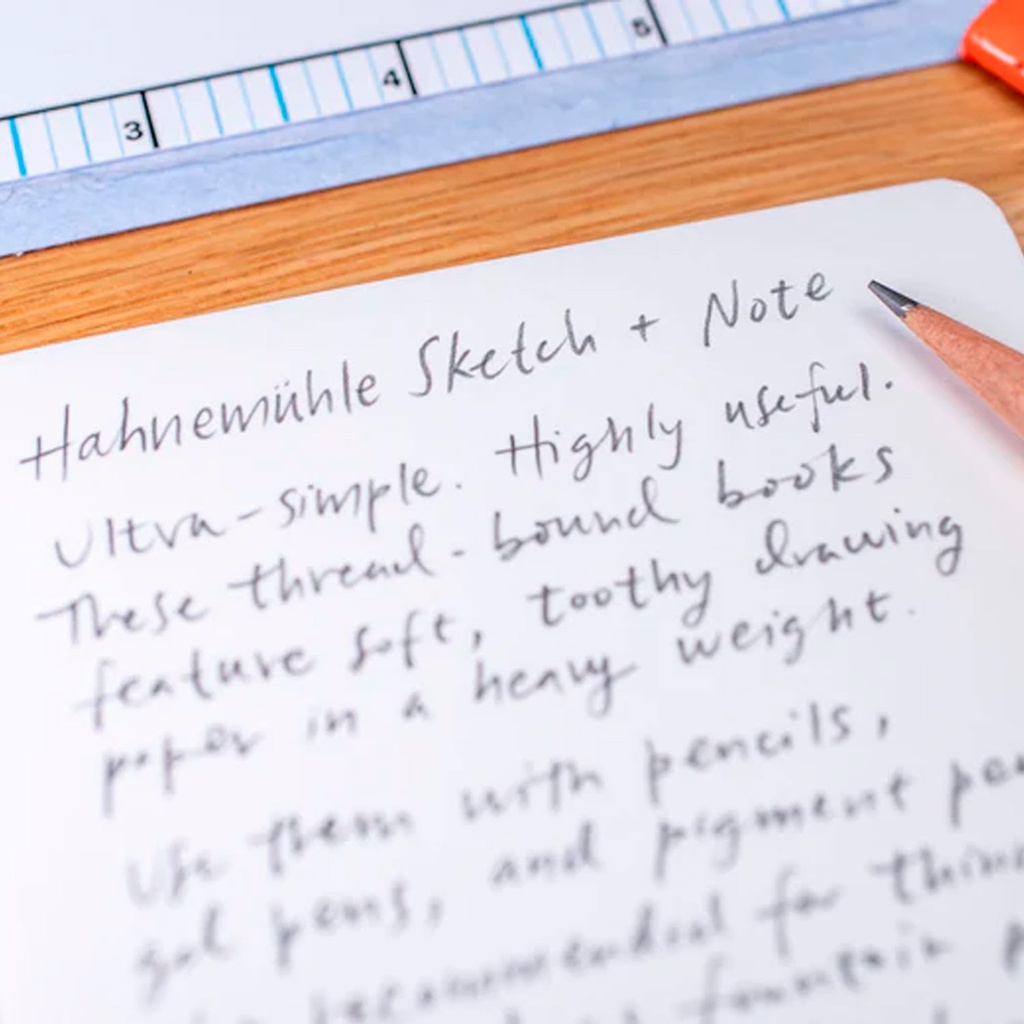 3 4 5
Hahnemühle Sketch + Note
Ultra-simple. Highly useful.
These thread-bound books
feature soft, toothy drawing
paper in a heavy weight.
Use them with pencils,
gel pens, and pigment
recommended for
fountain